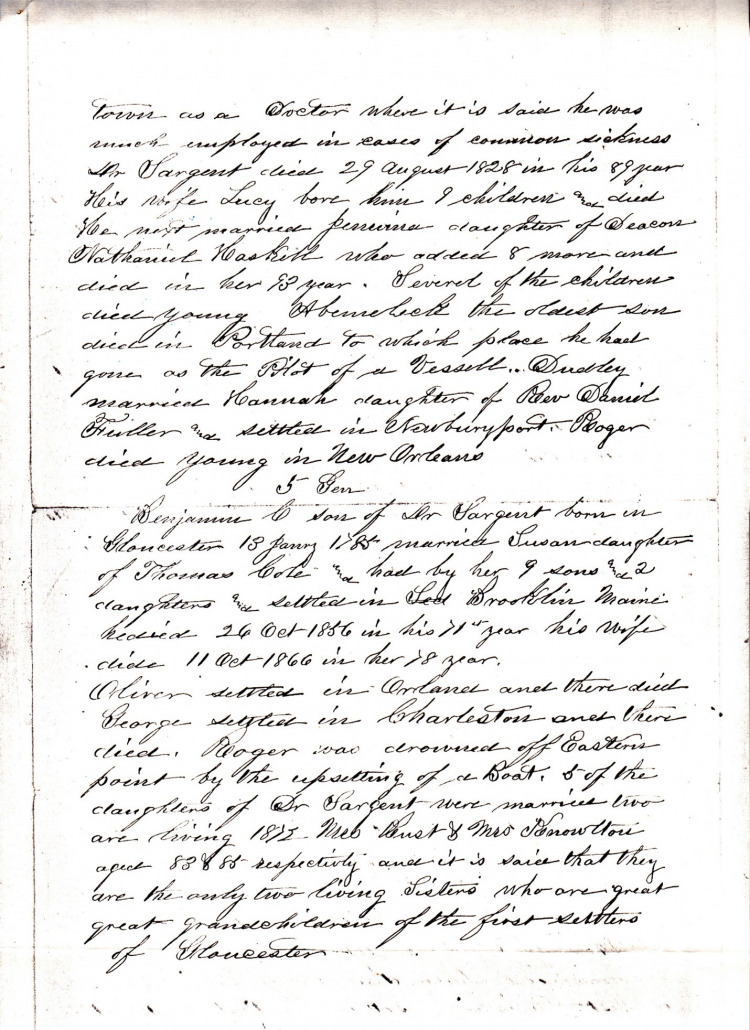 town as a Doctor where it is said he was
much employed in cases of common sickness
Dr Sargent died 29 August 1828 in his 89 year
His wife Lucy bore him 9 children and died
He next married Jemima daughter of Deacon
Nathaniel Haskill who added 8 more and
died in her 93 year. Severel of the children
died young Abemeleck the oldest son
died in Portland to which place he had
gone as the Pilot of a Vessell... Dudley
married Hannah daughter of Rev Daniel
Fuller and settled in Newburyport. Roger
died young in New Orleans
5 Gen
Benjamin C son of Dr Sargent born in
Gloucester 13 Janry 1785 married Susan daughter
of Thomas Cole and had by her 9 sons and 2
daughters and settled in Brooklin Maine
he died 26 Oct 1856 in his 71st year his wife
dide 11 Oct 1866 in her 78 year.
Oliver settled in Orland and there died
George settled in Charleston and there
died. Roger was drowned off Eastern
point by the upsetting of a Boat. 5 of the
daughters of Dr Sargent were married two
are living Mrs Rust & Mrs Knowlton
aged 83 & 85 respectivly and it is said that they
are the only two living Sisters who are great
great grandchildren of the first settlers
of Gloucester